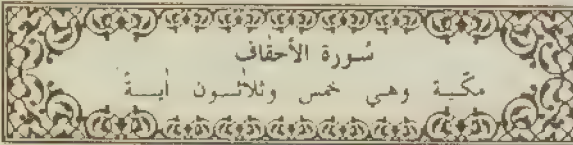 سُورة الأحقاف
مكّية وهي خمس وثلاثون أيــة